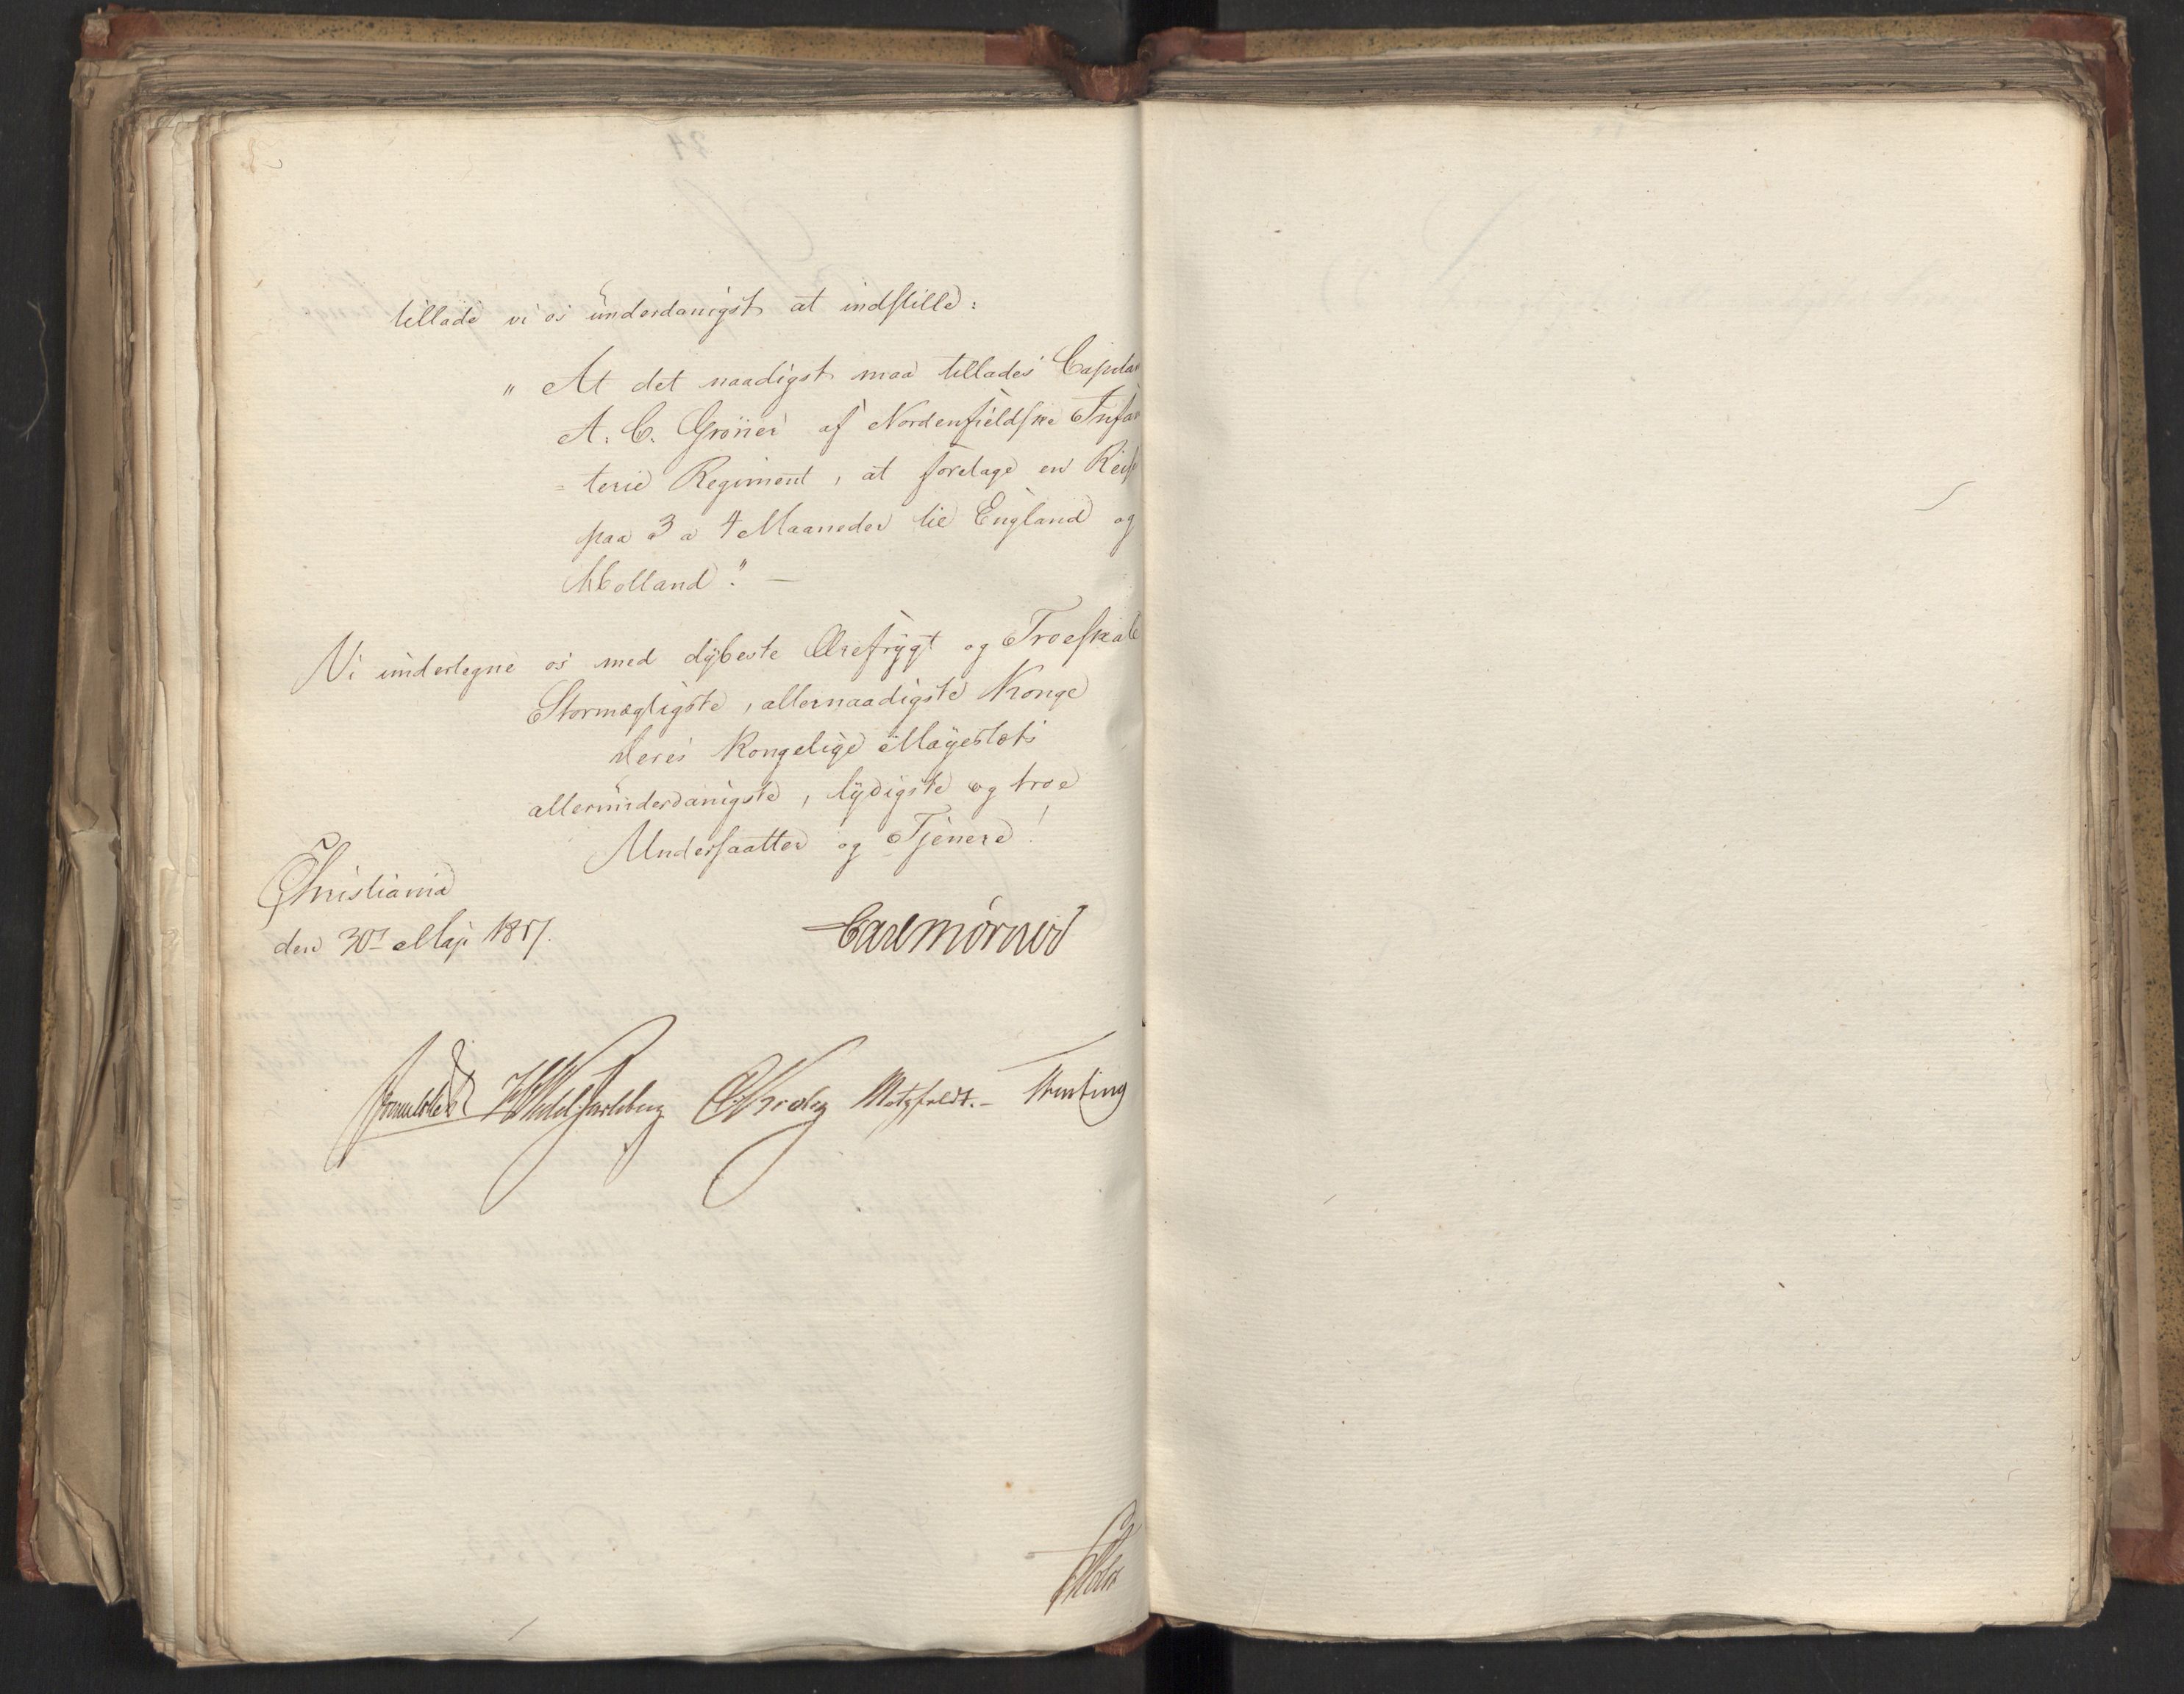 tillade vi os underdanigst at indstille:
" At det naadigst maa tillades Capita
A. C. Grøner af Nordenfieldske Infan
= terie Regiment, at foretage en Reise
paa 3 a 4 Maaneder til England og
Holland". —
Vi undertegne os med dybeste Ærefrygt og Troeskab
Stormægtigste, allernaadigste Konge
Deres Kongelige Mayestæts
allerunderdanigste, lydigste og troe
Undersaatter og Tjenere!
Christiania
den 30te Maji 1817.
Carl Mörner
Sommerhielm HWedelJarlsberg CKrohg Motzfeldt.- Treschow
Holst